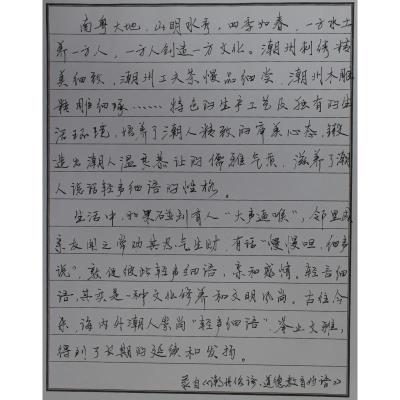 南粤大地，山明水秀，四季如春，一方水土
养一方人，一方人创造一方文化。潮州刺绣精
美细致，潮州工夫茶慢品细尝，潮州木雕
精雕细琢……特色的生产工艺及独有的生
活环境，培养了潮人精致的审美心态，锻
造出潮人温良恭让的儒雅气质，滋养了潮
人说话轻声细语的性格。
生活中，如果碰到有人“大声逼喉”，邻里或
亲友闻之常劝其忍气生财，有话“慢慢呾，细声
说”，敦促彼此轻声细语，亲和感情。轻言细
语，其实是一种文化修养和文明风尚。古往今
来，海内外潮人崇尚“轻声细语”，举止文雅，
得到了长期的延续和发扬。
录自《潮州俗谚·道德教育俗语》